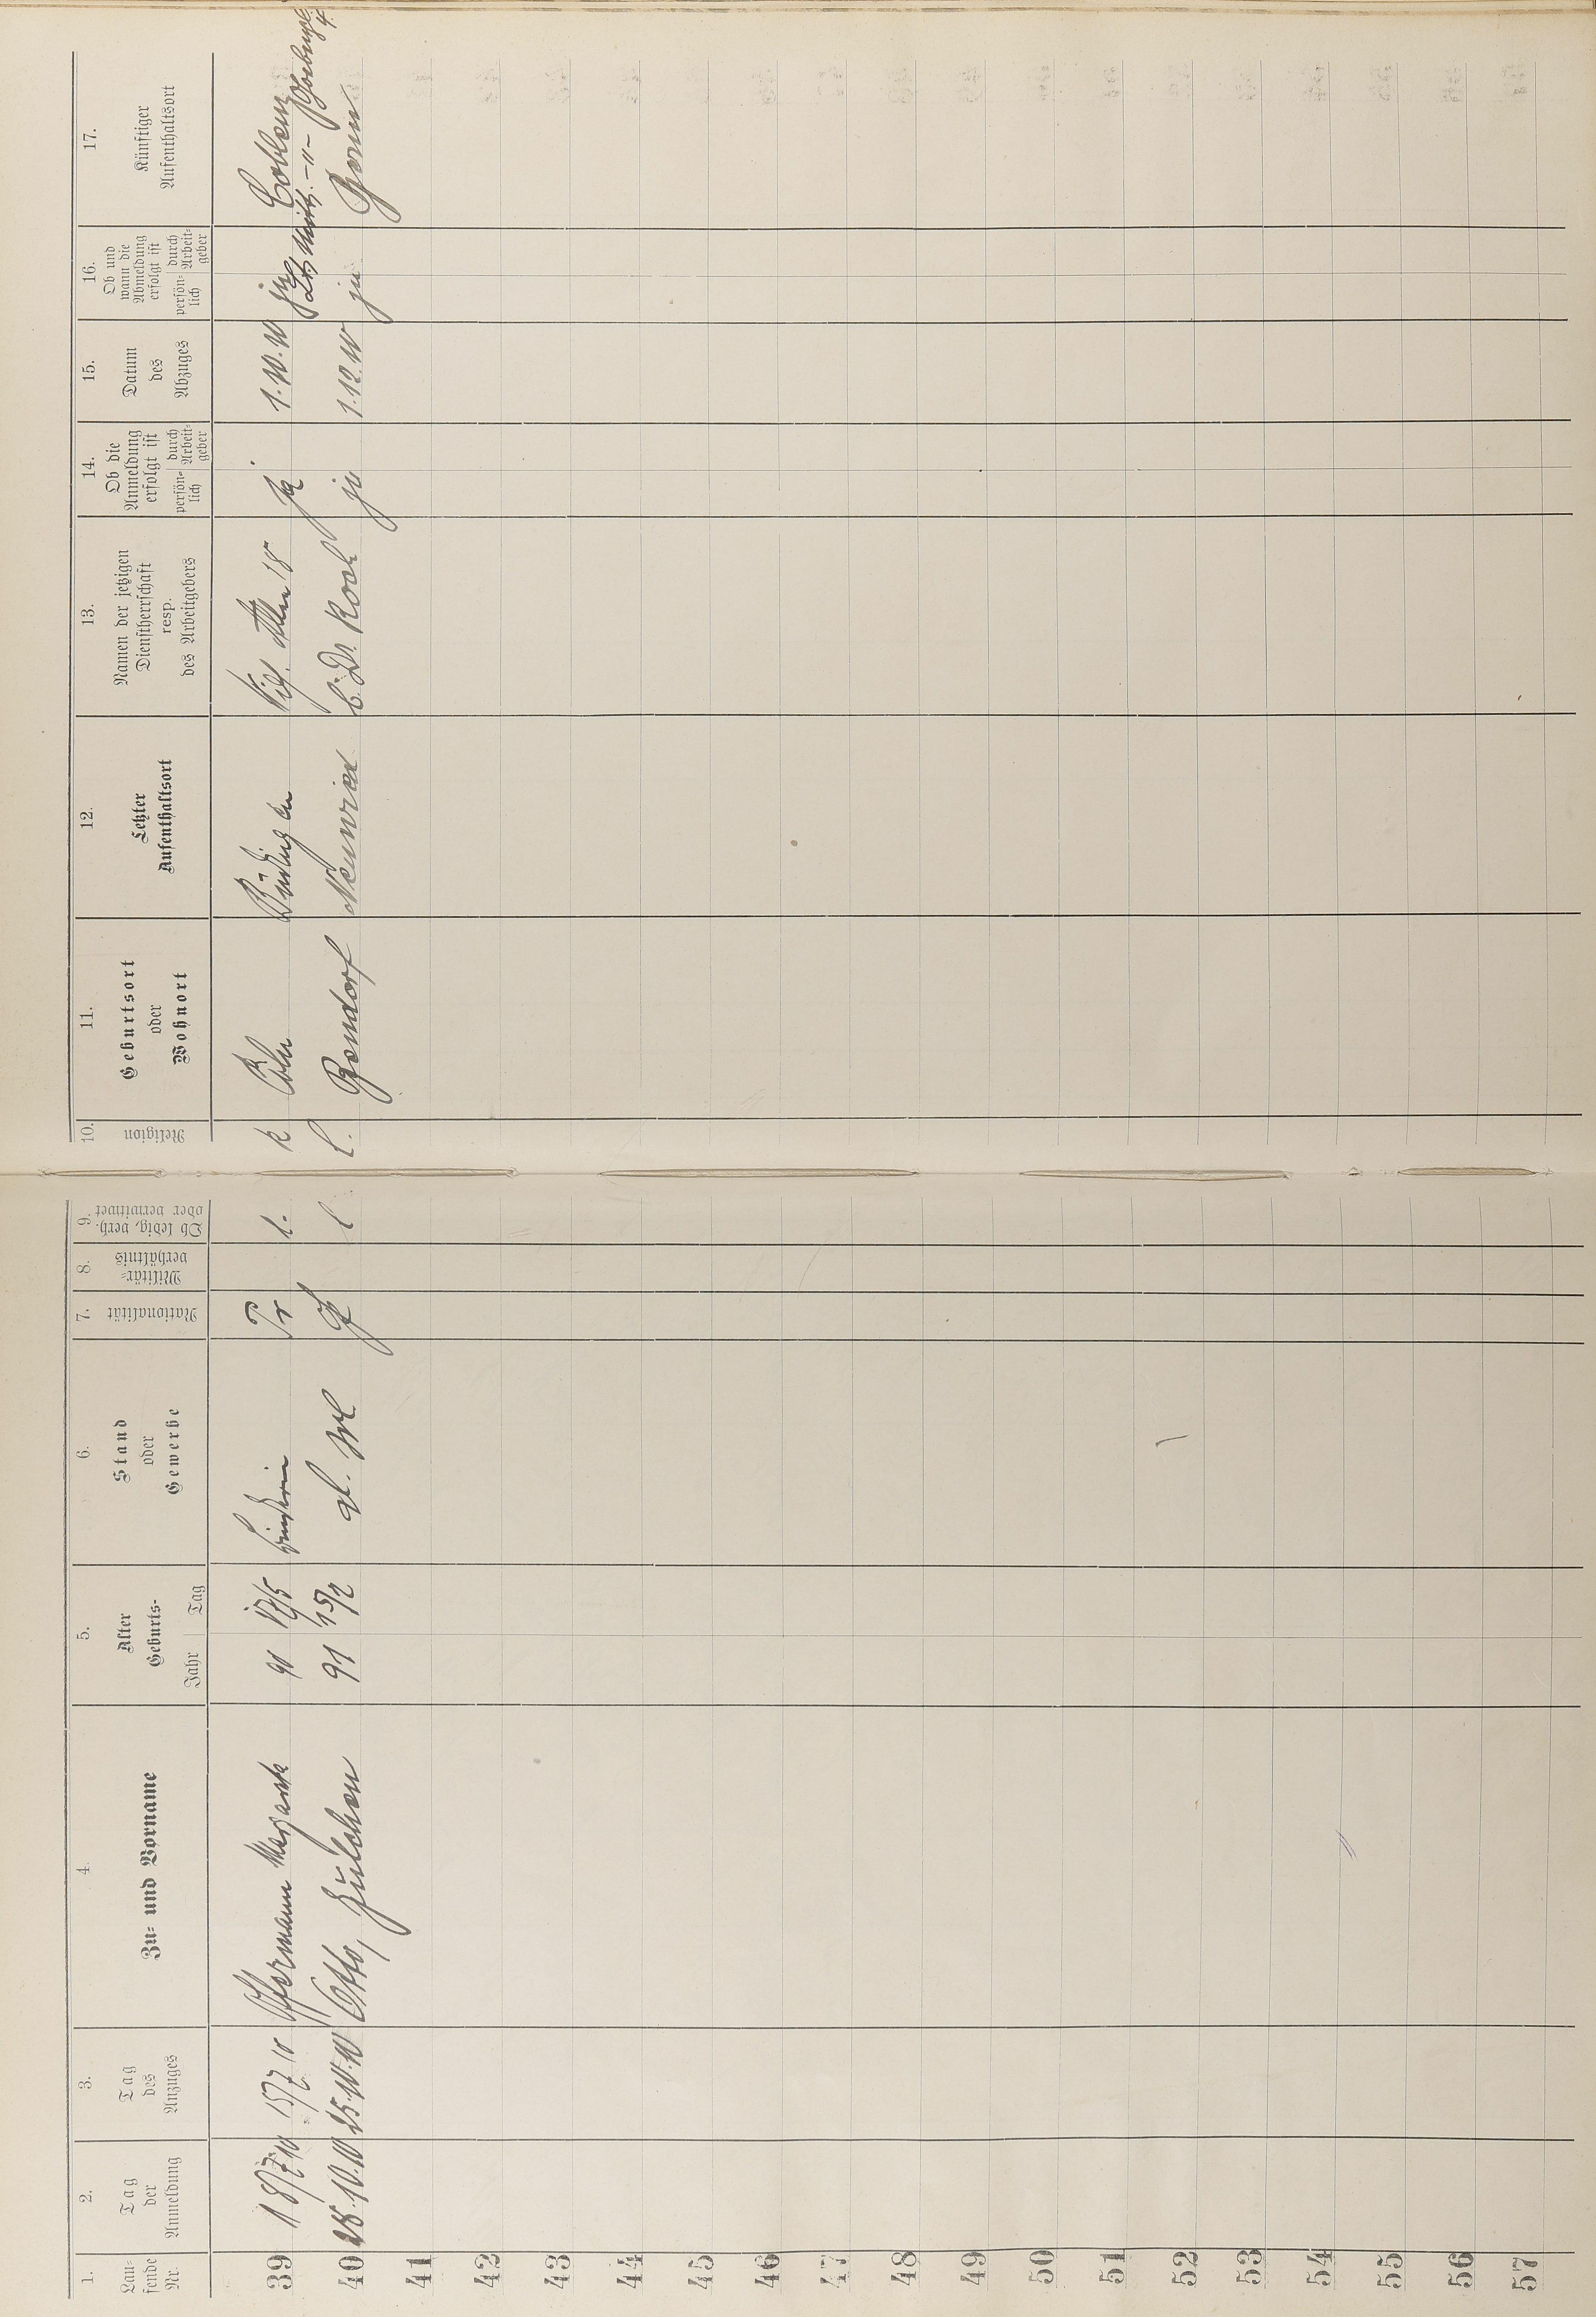 1.
Lau-
fende
Nr.
2.
Tag
der
Anmeldung
3.
Tag
des
Anzuges
4.
Zu- und Vorname
5.
Alter
Geburts-
Jahr Tag
6.
Stand
oder
Gewerbe
7.
Nationalität
8.
Militär-
verhältnis
9.
Ob ledig, verh.
oder verwitwet
10.
Religion
11.
Geburtsort
oder
Wohnort
12.
Letzter
Aufenthaltsort
13.
Namen der jetzigen
Dienstherrschaft
resp.
des Arbeitgebers
14.
Ob die
Anmeldung
erfolgt ist
persön-
lich
durch
Arbeit-
geber
15.
Datum
des
Abzuges
16.
Ob und
wann die
Abmeldung
erfolgt ist
persön-
lich
durch
Arbeit-
geber
17.
Künftiger
Aufenthaltsort
39 18/7 10 15/7 10 Margarete 90 17/5 Pr l. k Cöln Büdingen 18 ja 1.10.10 ja Coblenz
40 28.10.10 25.10.10 Otto, Julchen 91 15/2 l l. Bendorf Neuwied b. Dr. Koch ja 1.12.10 ja Bonn
41
42
43
44
45
46
47
48
49
50
51
52
53
54
55
56
57